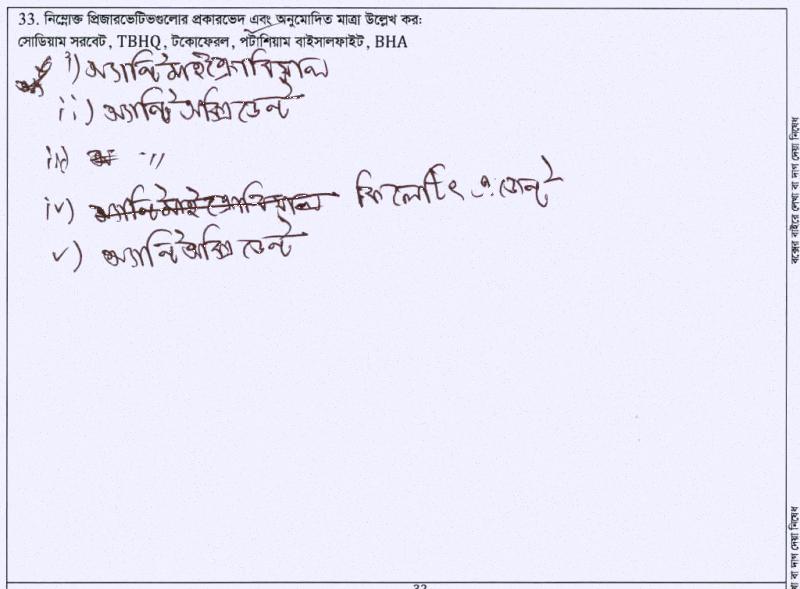 33. নিম্নোক্ত প্রিজারভেটিভগুলোর প্রকারভেদ এবং অনুমোদিত মাত্রা উল্লেখ কর:
সোডিয়াম সরবেট, TBHQ, টকোফেরল, পটাশিয়াম বাইসালফাইট, BHA
i) অ্যান্টিমাইক্রোবিয়াল
ii) অ্যান্টিঅক্সিডেন্ট
iii) "
iv) কিলেটিং এজেন্ট
v) অ্যান্টিঅক্সিডেন্ট
বক্সের বাইরে লেখা বা দাগ দেয়া নিষেধ
খা বা দাগ দেয়া নিষেধ